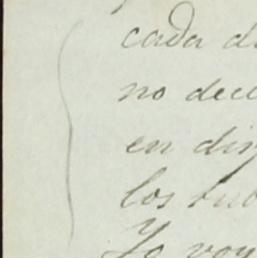 cada d
no dec
en di
los
Yo voy